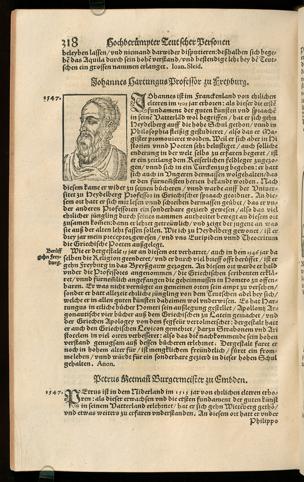 318 Hochberümpter Teutscher Personen
beleyben lassen / und niemand darwider disputieren: deßhalben sich bege-
ben das Aquila durch sein hohe verstand / und bestendige lehr bey dē Teut-
schen ein grossen nammen erlanget. Ioan. Sleid.
Johannes Hartungus Professor zu Freyburg.
1547.
Johannes ist im Franckenland von ehrlichen
elteren im 1505 jar erboren: als dieser die erste
fundament der künsten und sprachē
in seinē Vatterlād wol begriffen / hat er sich gehn
Heydelberg auff die hohe Schul gethon / unnd in
Philosophia fleissig gestudieret / also das er Ma-
gister promoviert worden. Weil er sich aber in Hi-
storien unnd Poeten sehr belustiget / auch
gelegenheit in der welt selbs zu erfaren begeret / ist
er ein zeitlang dem Keiserlichen feldleger zugezo-
gen / unnd sich in ein Türckenzug begeben: er hatt
sich auch in Ungeren dermassen wolgehalten / das
er den fürnemsten herren bekandt worden. Nach
diesem kame er wider zu seinen büchern / unnd warde auff der Univer-
sitet zu Heydelberg Professor in Griechischer sprach geordnet. An die-
sem ort hat er sich mit lesen unnd schreiben dermassen geübet / das er un-
der anderen Professoren ein sonderbare gezierd gewesen / also das viel
ehrlicher jüngling durch seines nammens authoritet bewegt an diesem ort
zusamen kommen: dann er lehret getreuwlich / und zeiget der jugent an was
sie auß der alten lehr fassen sollen. Wie ich zu Heydelberg gewesen / ist er
drey jar mein preceptor gewesen / und uns Euripidem unnd Theocritum
die Griechische Poeten außgelegt.
Berüfft
gehn Frey-
burg.
Wie er dergestalt 9 jar an diesem ort verharret / auch in dem 1546 jar da
selben die Religion geendert / und er durch viel brieff offt berüfft / ist er
gehn Freyburg in das Breyßgauw gezogen. An diesem ort warde er auch
under die Professores angenommen / die Griechischen scribenten erklä-
ret / unnd fürnemlich angefangen die geheimnussen in Homero zu offen-
baren. Er was nicht vernüget an gemeinen orten sein ampt zu versehen /
sonder er hatt allezeit ehrliche jüngling von dem Teutschen adel bey sich /
welche er in allen guten künsten daheimen wol underwise. Es hat Har-
tungus in etliche bücher Homeri seine außlegung gestellet / Apollonij Ar-
gonautische vier bücher auß dem Griechischen zu Latein gemachet / und
der Griechen Apology von dem fegfeür vertolmetschet: dergestalt hatt
er auch den Griechischen Lexicon gemehret / darzu Strabonem und Ari-
stotelem in viel orten verbesseret: also das die nachkommende sein hohen
verstand genugsam auß dessen büchern erlehrnen. Dergestalt fūret er
noch in hohem alter für / ist menschlichen freundtlich / füret ein from-
mes leben / unnd würdt für ein sonderbare gezierd in dieser hohen Schul
gehalten. Anon.
Petrus Burgermeister zu Embden.
1547.
Petrus ist in dem Niderland im 1515 jar von ehrlichen elteren erbo-
ren: als dieser erwachsen unnd die ersten fundament der guten künst
in seinem Vatterland erlehrnet / hat er sich gehn Witeberg gethō /
und etwas weiters zu erfaren understanden. An diesem ort hatt er under
Philippo